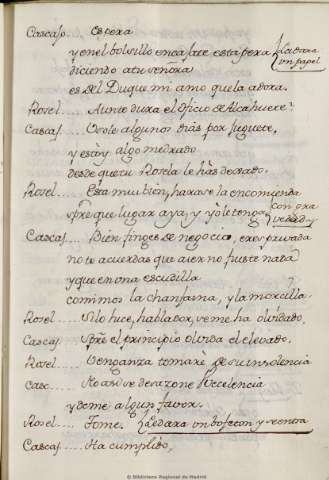 Cascajo. espera
y en el bolsillo encajate esta pera } La dara
diciendo a tu señora un papel
es del Duque mi amo que la adora.
Rosel.... Aun te dura el oficio de Alcahuete?
Cascaj... algunos dias por juguete,
y estoy algo medrado
desde que tu Rosela le has dexado.
Rosel.... Esta mui bien, harase la encomienda
spre que lugar aya, y yo le tenga } con gra
vedad
Cascaj.... Bien finges de negocio, eres privada
no te acuerdas que aier no fuiste nada
y que en una escudilla
comimos la chanfaina, y la morcilla.
Rosel.... Si lo fuce, hablador, ve me ha olvidado.
Cascaj.... Spre el principio olvida el elevado.
Rosel.... Venganza tomare de su insolencia
Casc..... No asi se desazone Vexcelencia
y deme algun favor.
Rosel.... Tome. Le dara un bofeton y se entra
Cascaj.... Ha cumplido,
© Biblioteca Regional de Madrid